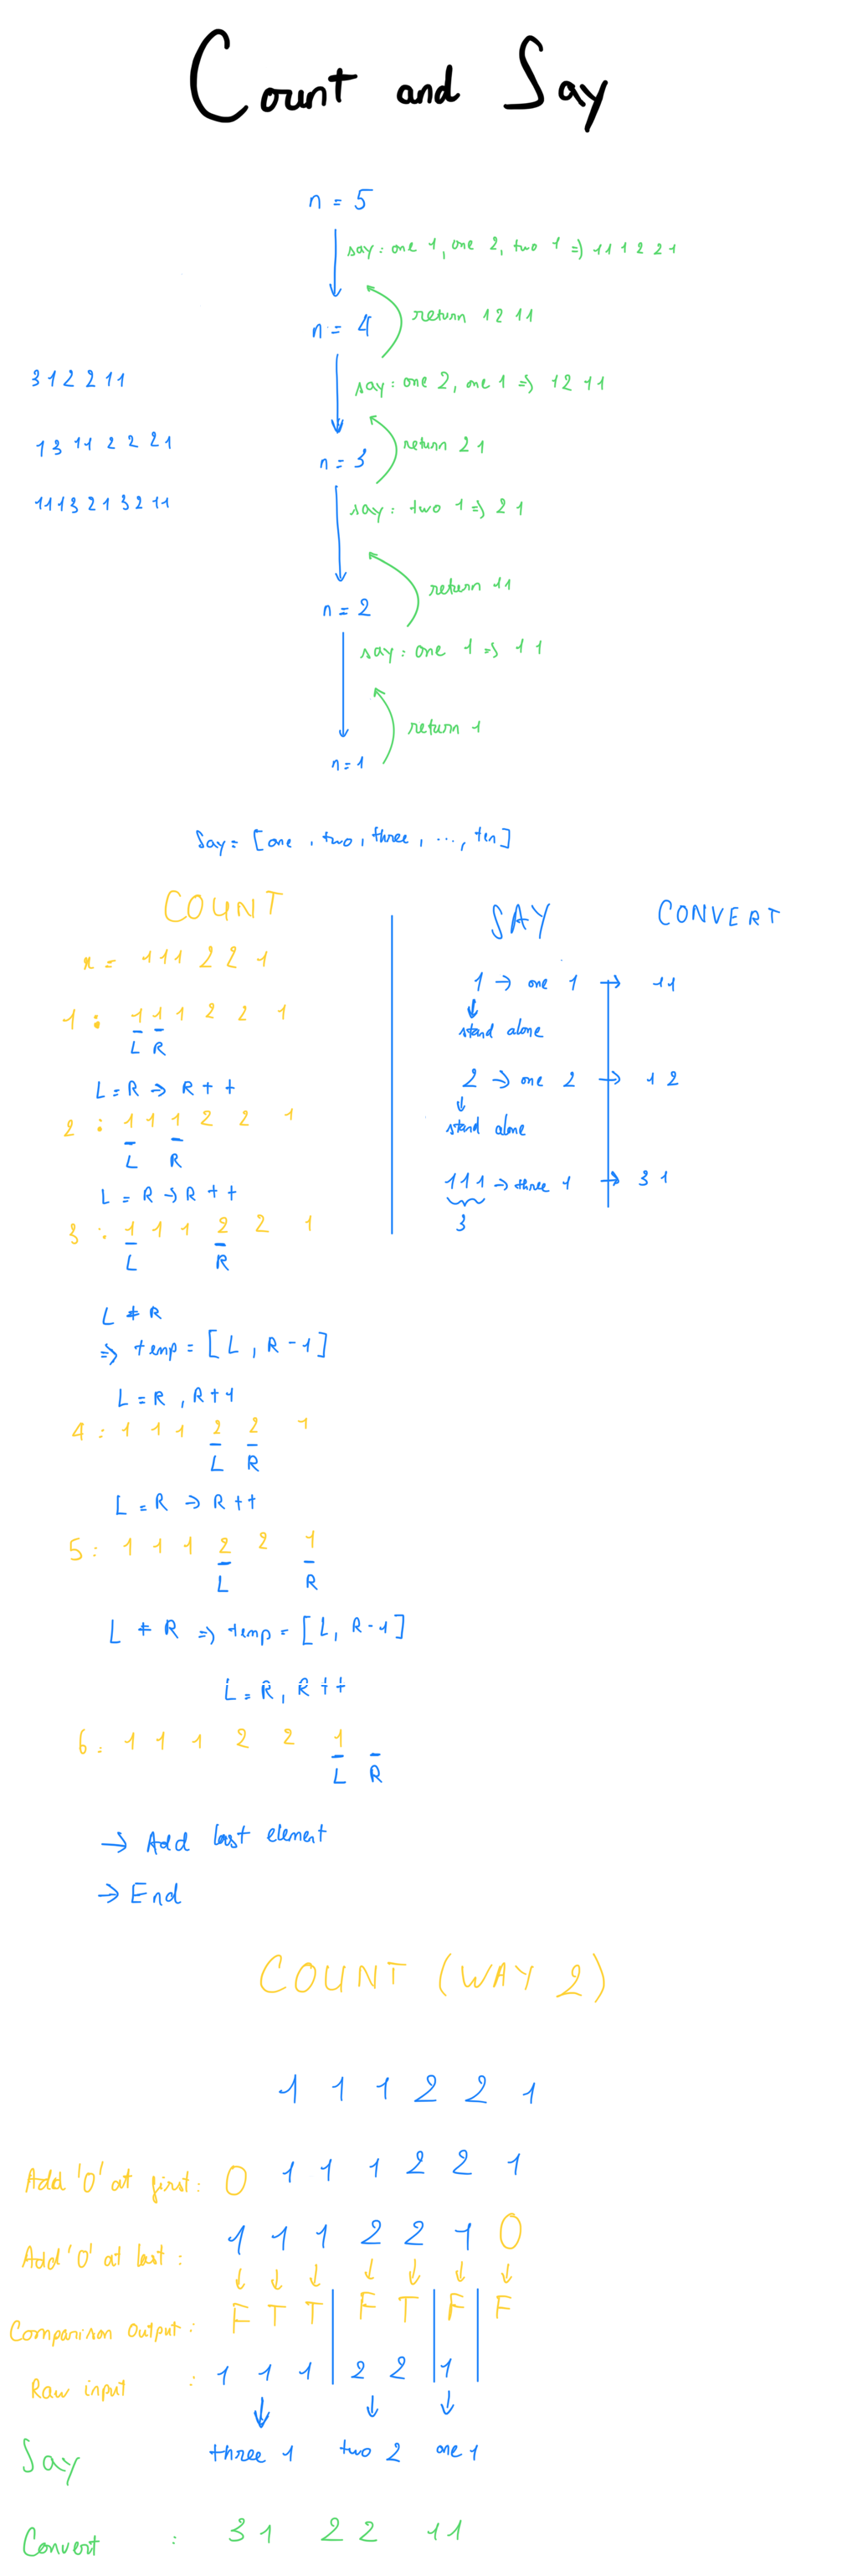 Count and Say
n = 5
say: one 1, one 2, two 1 => 111221
return 1211
n = 4
312211
say: one 2, one 1 => 1211
13112221
return 21
n = 3
1113213211
say: two 1 => 21
return 11
n = 2
say: one 1 => 11
return 1
n = 1
Say = [one, two, three, ..., ten]
COUNT
n = 111221
1 : 111221
L R
L = R -> R++
2 : 111221
L R
L = R -> R++
3 : 111221
L R
L ≠ R
=> temp = [L, R-1]
L = R, R++
4 : 111221
L R
L = R -> R++
5 : 111221
L R
L ≠ R => temp = [L, R-1]
L = R, R++
6 : 111221
L R
-> Add last element
-> End
SAY CONVERT
1 -> one 1 -> 11
stand alone
2 -> one 2 -> 12
stand alone
111 -> three 1 -> 31
3
COUNT (WAY 2)
1 1 1 2 2 1
Add '0' at first: 0 1 1 1 2 2 1
Add '0' at last: 1 1 1 2 2 1 0
Comparison Output: F T T F T F F
Raw input : 1 1 1 2 2 1
Say three 1 two 2 one 1
Convert : 31 22 11